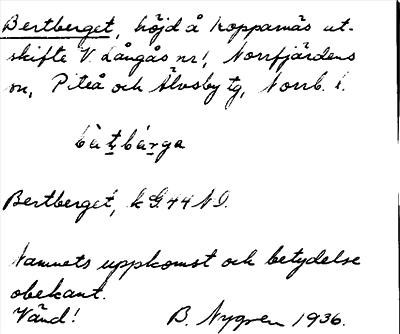 Bertberget, höjd å Kopparnäs ut-
skifte V. Långås nr 1, Norrfjärdens
sn, Piteå och Älvsby tg, Norrb. l.
bàt̠bár̠ga
Bertberget, k G. 44 N O.
Namnets uppkomst och betydelse
obekant.
Vänd! B. Nygren 1936.